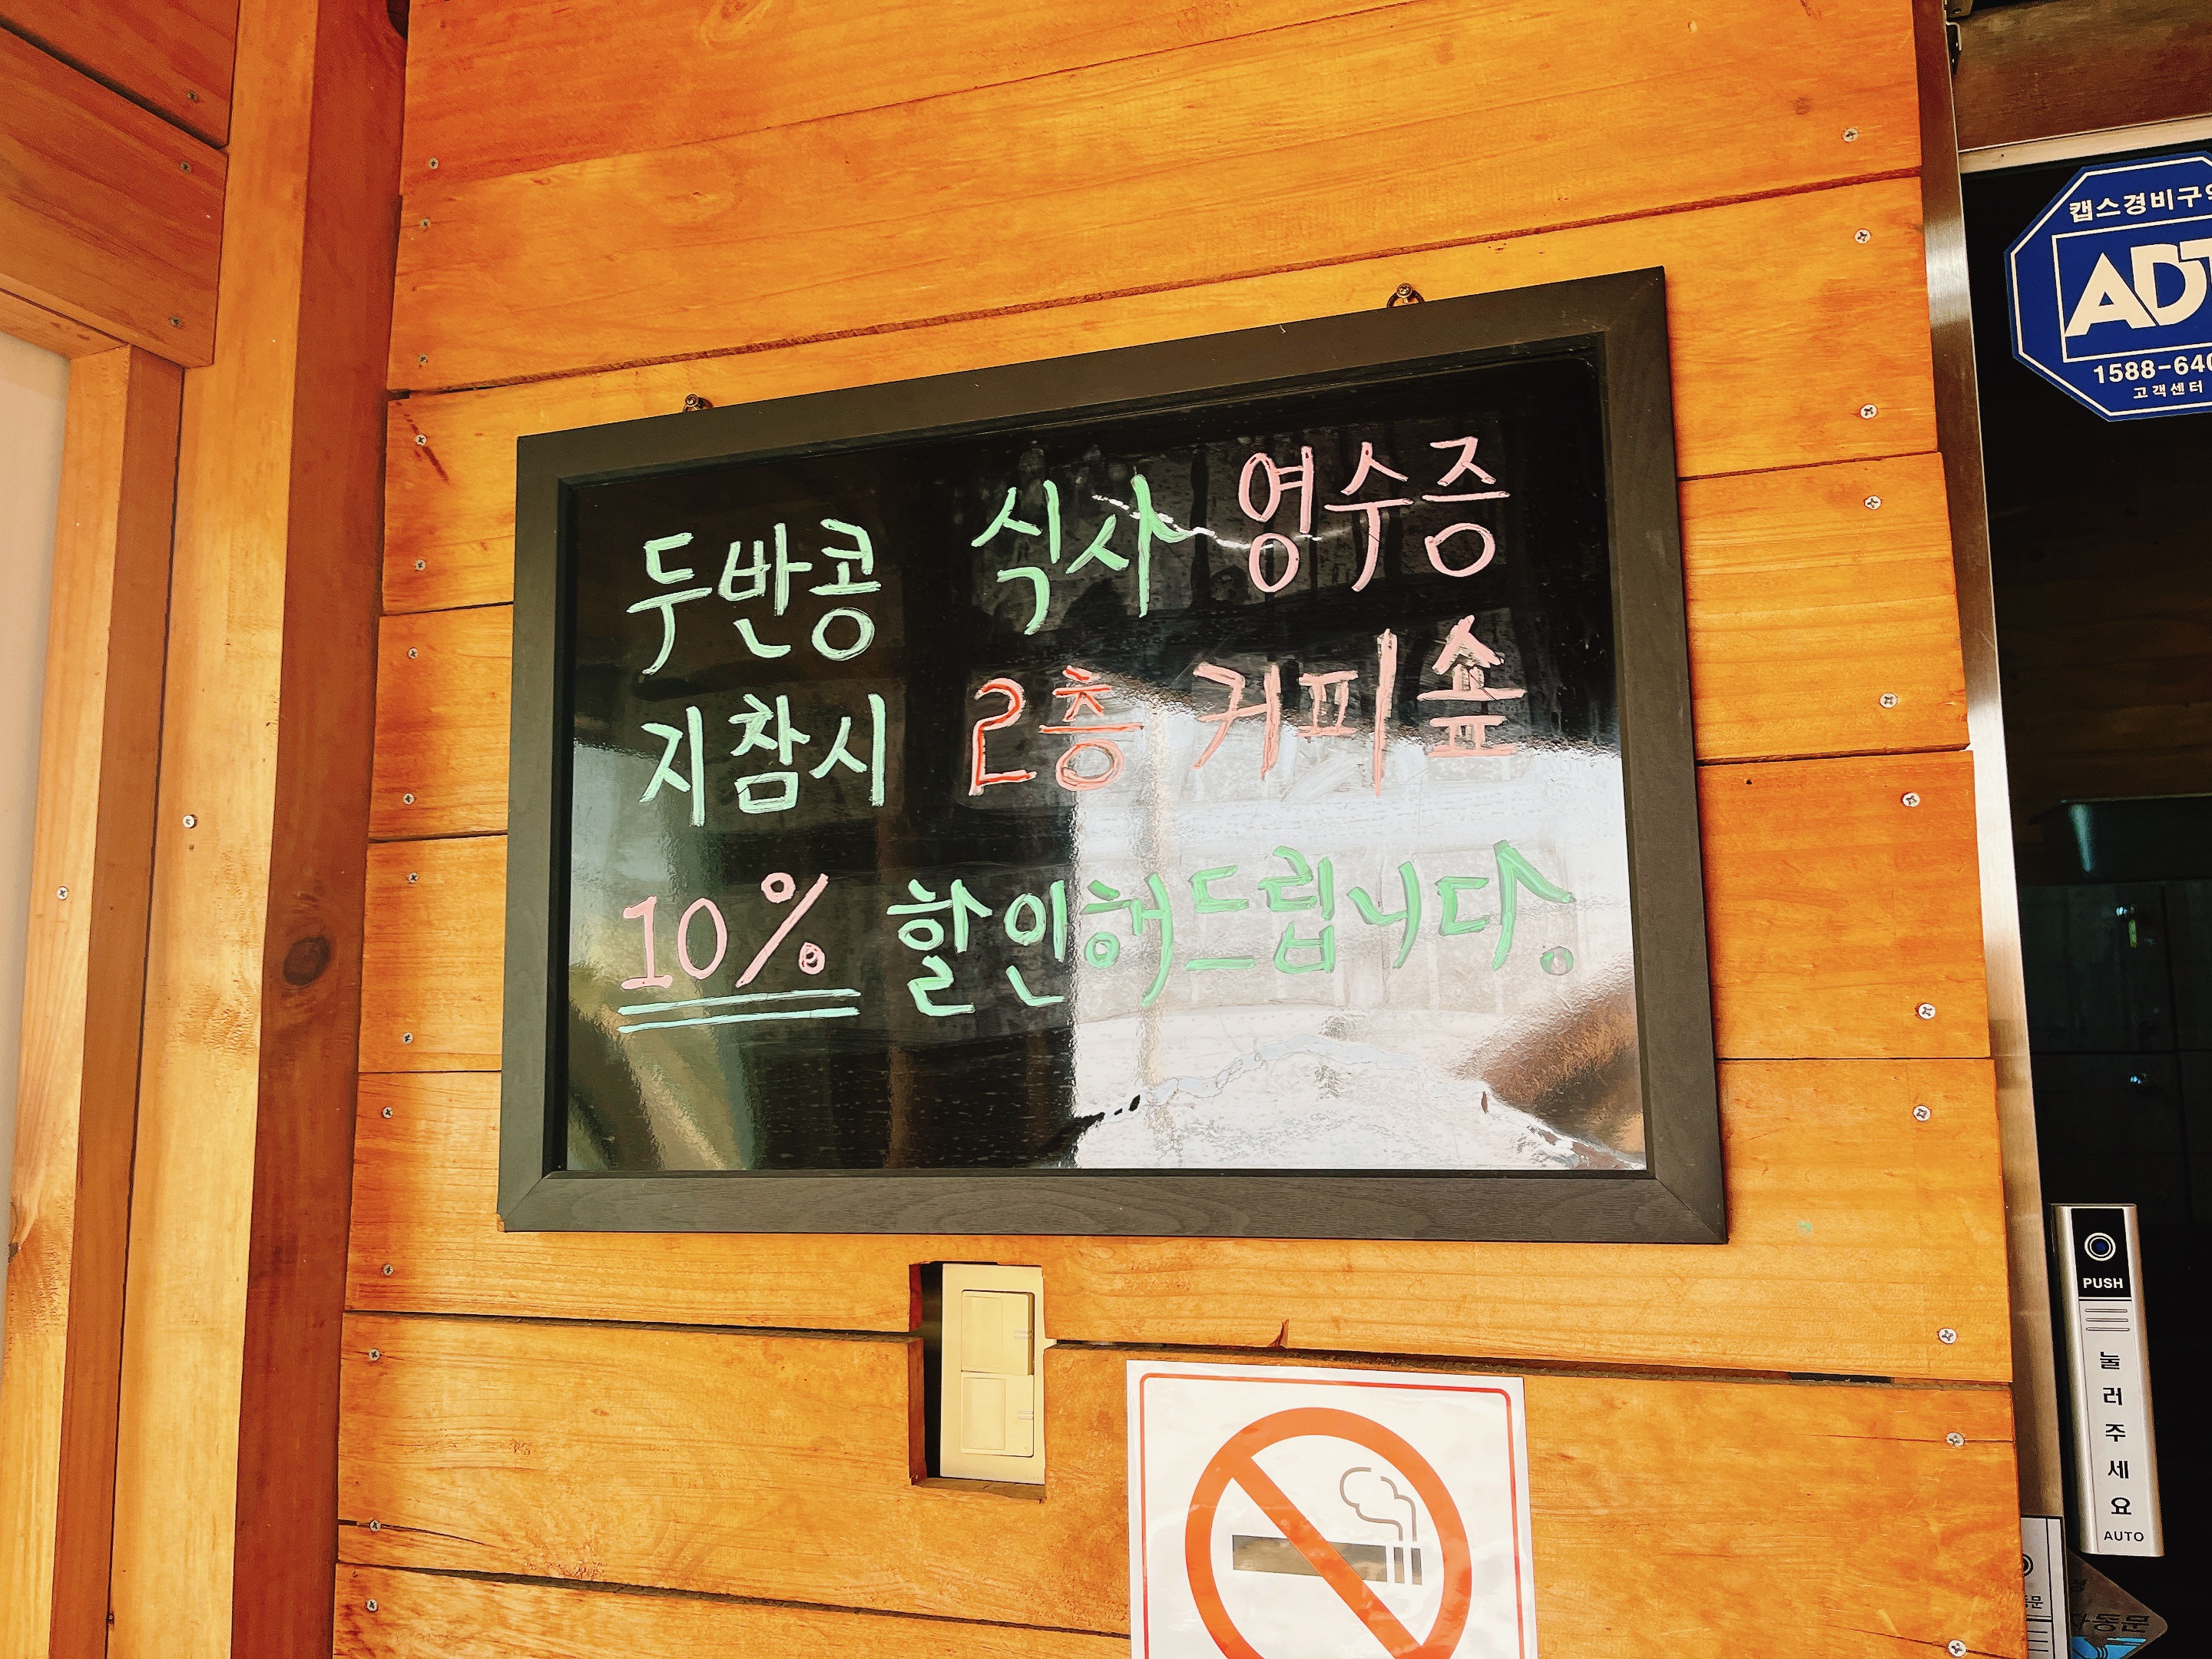 두반콩 식사 영수증
지참시 2층 커피숖
10% 할인해드립니다.
캡스경비구역
ADT
1588-640
고객센터
PUSH
눌러주세요
AUTO
자동문